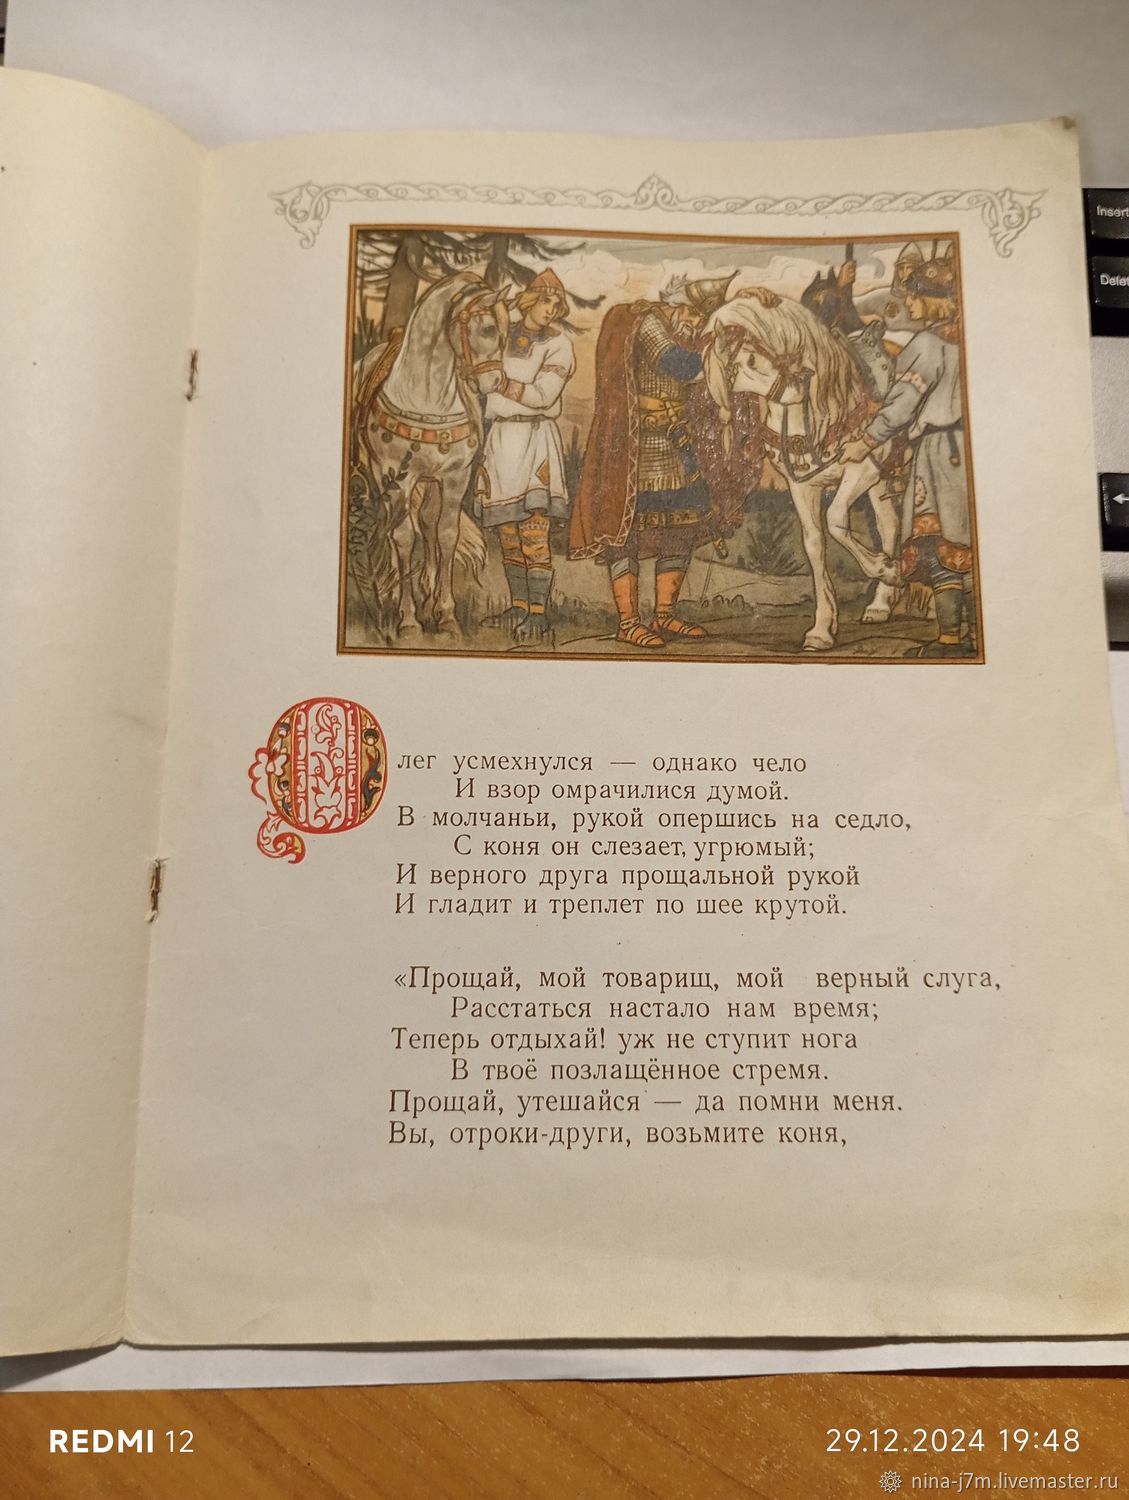 Insert
Delet
Олег усмехнулся — однако чело
И взор омрачилися думой.
В молчаньи, рукой опершись на седло,
С коня он слезает, угрюмый;
И верного друга прощальной рукой
И гладит и треплет по шее крутой.
«Прощай, мой товарищ, мой верный слуга,
Расстаться настало нам время;
Теперь отдыхай! уж не ступит нога
В твоё позлащённое стремя.
Прощай, утешайся — да помни меня.
Вы, отроки-други, возьмите коня,
REDMI 12
29.12.2024 19:48
nina-j7m.livemaster.ru